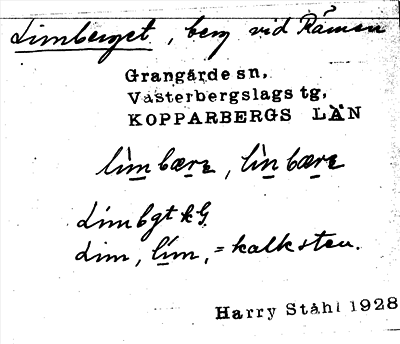 Limberget, berg vid Rämen
Grangärde sn,
Västerbergslags tg,
KOPPARBERGS LÄN
lìmbærɛ, lìnbærɛ
Limbgt kG.
Lim, lím, = kalksten.
Harry Ståhl 1928